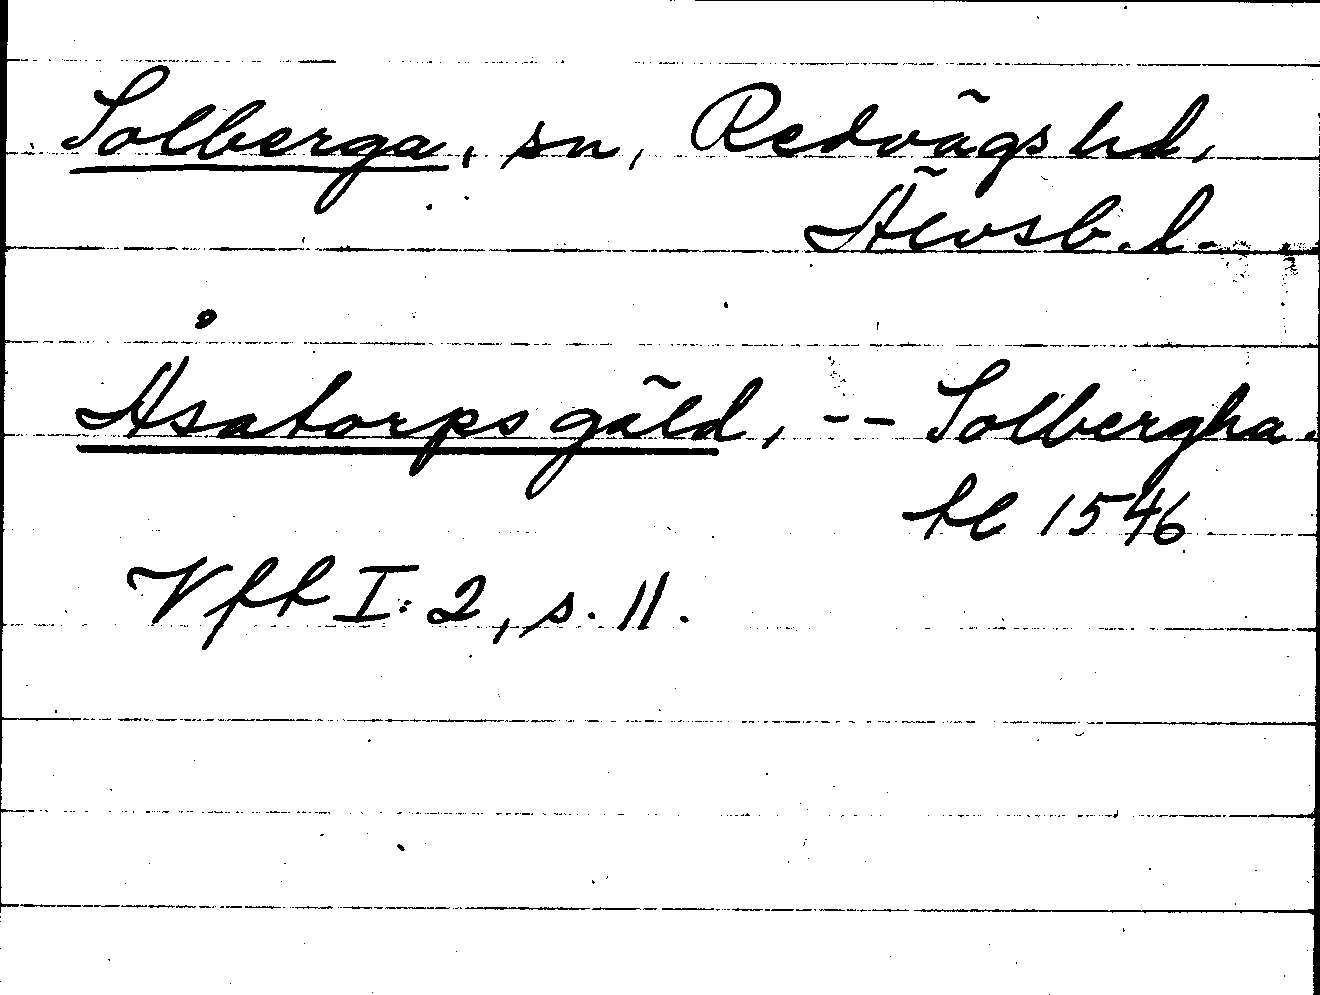 Solberga, sn, Redvägs hd,
Älvsb. l.
Åsatorps gäld, -- Solbergha.
hl 1546
Vfft I: 2, s. 11.